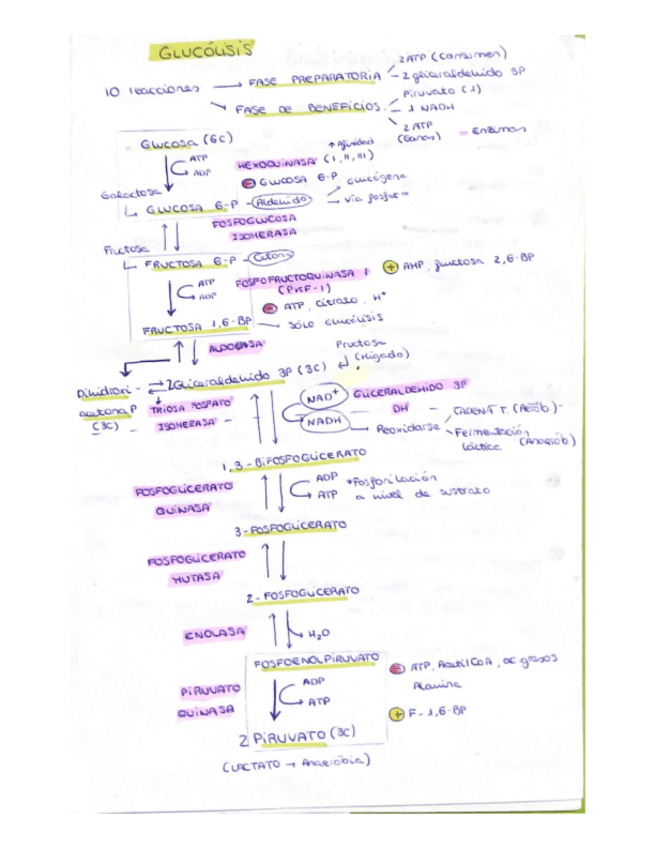 GLUCÓLISIS
10 reacciones → FASE PREPARATORIA
2 ATP (consumen)
2 gliceraldehido 3P
→ FASE DE BENEFICIOS
Piruvato (1)
1 NADH
2 ATP (Ganas)
- Enzimas
GLUCOSA (6C)
ATP
ADP
↑ Afinidad
HEXOQUINASA (I, II, III)
⊖ GLUCOSA 6-P
Galactosa
GLUCOSA 6-P - Aldehido
glucógeno
Vía fosfato
FOSFOGLUCOSA
ISOMERASA
Fructosa
FRUCTOSA 6-P - Cetona
ATP
ADP
FOSFOFRUCTOQUINASA 1
(PKF-1)
⊕ AMP, fructosa 2,6-BP
⊖ ATP, citrato, H+
FRUCTOSA 1,6-BP - Sólo glucólisis
ALDOLASA
Fructosa
(Hígado)
Dihidroxi-
acetona P
(3C)
2 Gliceraldehido 3P (3C)
TRIOSA FOSFATO
ISOMERASA
NAD+
NADH
GLICERALDEHIDO 3P
DH
Reoxidarse
CADENA T. (Aerób)
Fermentación
láctica (Anaerób)
1,3-BIFOSFOGLICERATO
FOSFOGLICERATO
QUINASA
ADP
ATP
*Fosforilación
a nivel de sustrato
3-FOSFOGLICERATO
FOSFOGLICERATO
MUTASA
2-FOSFOGLICERATO
ENOLASA
H2O
FOSFOENOLPIRUVATO
PIRUVATO
QUINASA
ADP
ATP
⊖ ATP, Acetil CoA, ac grasos
Alanina
⊕ F-1,6-BP
2 PIRUVATO (3C)
(LACTATO → Anaerobia)